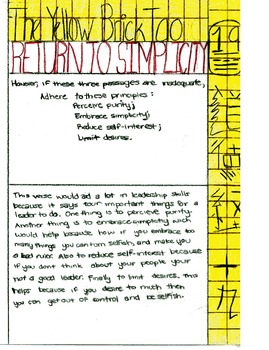 The Yellow Brick Tao
RETURN TO SIMPLICITY
However, if these three passages are inadequate,
Adhere to these principles:
Perceive purity;
Embrace simplicity;
Reduce self-interest;
Limit desires.
This verse would aid a lot in leadership skills
because it says four important things for a
leader to do. One thing is to percieve purity.
Another thing is to embrace simplicity wich
would help because how if you embrace too
many things you can turn selfish, and make you
a bad ruler. Also to reduce self-interest because
if you dont think about your people your
not a good leader. Finally to limit desires. This
helps because if you desire to much then you
can get out of control and be selfish.